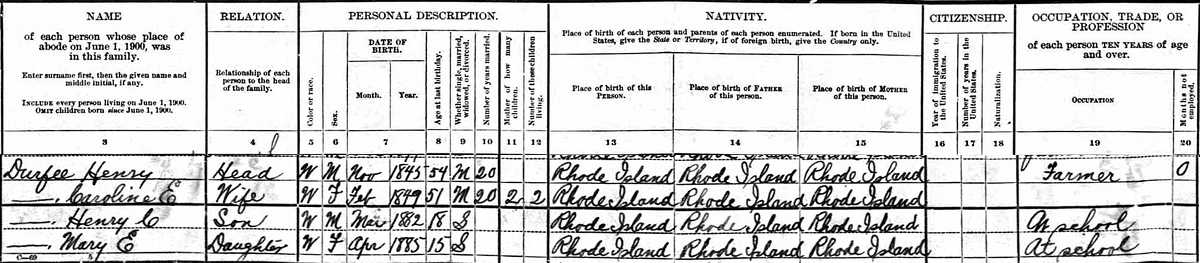 NAME
of each person whose place of
abode on June 1, 1900, was
in this family.
Enter surname first, then the given name and
middle initial, if any.
INCLUDE every person living on June 1, 1900.
OMIT children born since June 1, 1900.
3
RELATION.
Relationship of each
person to the head
of the family.
4
PERSONAL DESCRIPTION.
Color or race.
5
Sex.
6
DATE OF
BIRTH.
Month. Year.
7
Age at last birthday.
8
Whether single, married,
widowed, or divorced.
9
Number of years married.
10
Mother of how many
children.
11
Number of these children
living.
12
NATIVITY.
Place of birth of each person and parents of each person enumerated. If born in the United
States, give the State or Territory; if of foreign birth, give the Country only.
Place of birth of this
PERSON.
13
Place of birth of FATHER
of this person.
14
Place of birth of MOTHER
of this person.
15
CITIZENSHIP.
Year of immigration to
the United States.
16
Number of years in the
United States.
17
Naturalization.
18
OCCUPATION, TRADE, OR
PROFESSION
of each person TEN YEARS of age
and over.
OCCUPATION
19
Months not
employed.
20
Durfee Henry Head W M Nov 1845 54 M 20 Rhode Island Rhode Island Rhode Island Farmer 0
—, Caroline E Wife W F Feb 1849 51 M 20 2 2 Rhode Island Rhode Island Rhode Island
—, Henry C Son W M Mar 1882 18 S Rhode Island Rhode Island Rhode Island At school
—, Mary E Daughter W F Apr 1885 15 S Rhode Island Rhode Island Rhode Island At school
C-69